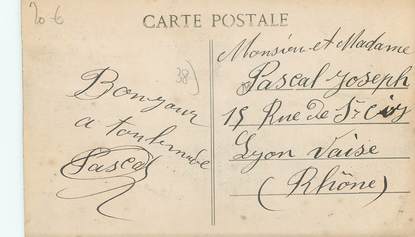 20-6
CARTE POSTALE
38)
Bonjour
a toute
Pascal
Monsieu et Madame
Pascal Joseph
15 Rue de St Cyr
Lyon Vaise
(Rhône)